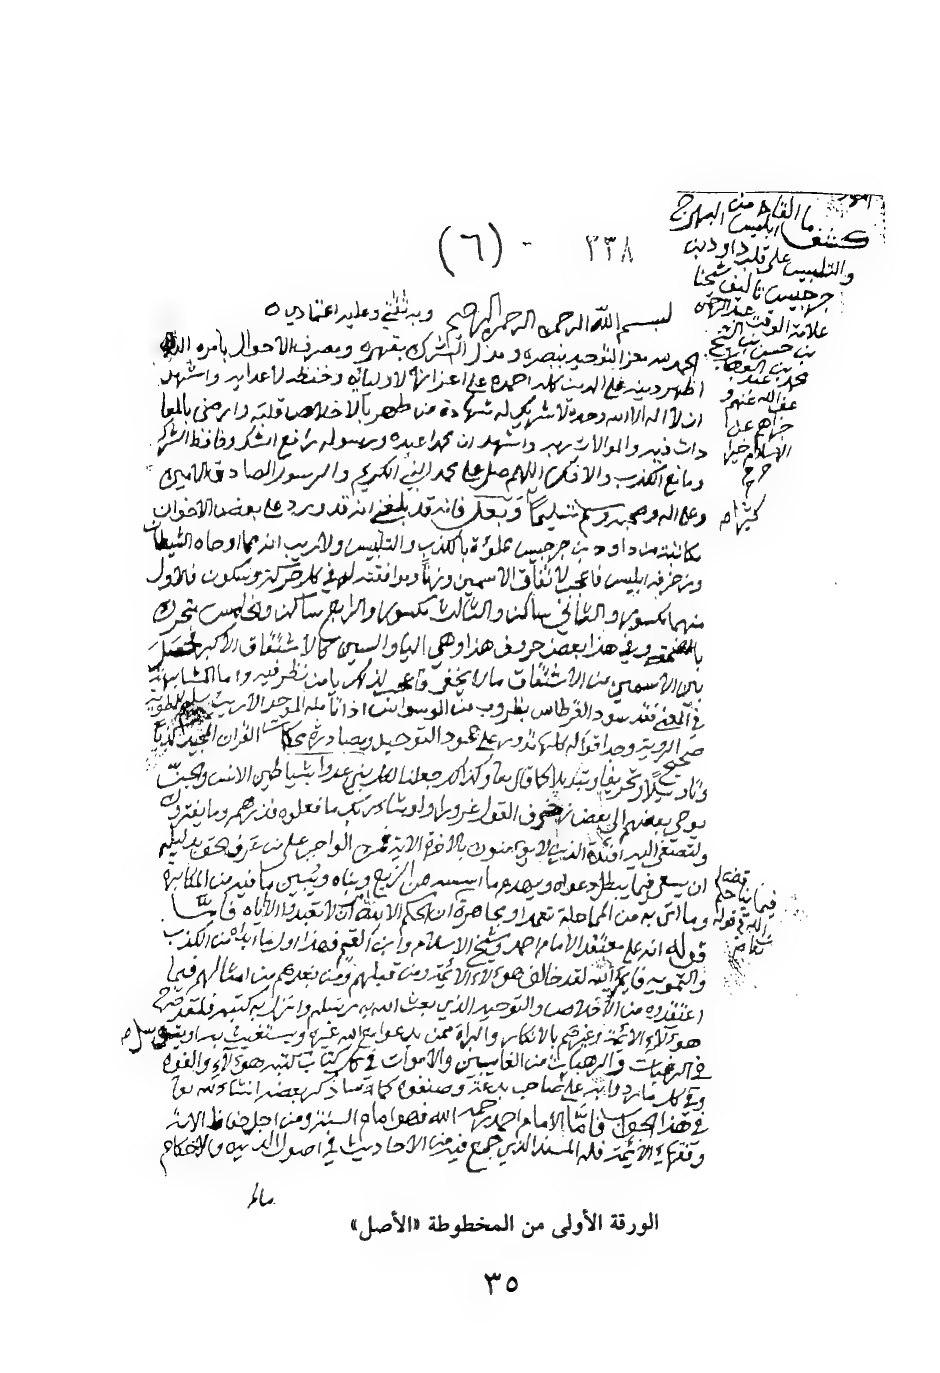 كشف ما القاه من ابليس البهرج
والتلبيس على قلب داود بن
جرجيس تأليف شيخنا
علامة الوقت عبد الرحمن
بن حسن بن الشيخ
محمد بن عبد الوهاب
عفا الله عنهم و
جزاهم عن
الاسلام خيرا
٣٣٨ - (٦)
بسم الله الرحمن الرحيم وبه ثقتي وعليه اعتمادي
الحمد لله معز التوحيد بنصره ومذل الشرك بقهره ومصرف الاحوال بامره الذي
اظهر دينه على الدين كله احمده على اعزازه لاوليائه وخفضه لاعدايه واشهد
ان لا اله الا الله وحده لا شريك له شهادة من طهر بالاخلاص قلبه وارضى بالمعا
دات فيه والموالات ربه واشهد ان محمدا عبده ورسوله رافع الشكر وخافظ الشرك
ومانع الكذب والافك اللهم صل على محمد النبي الكريم والرسول الصادق الامين
وعلى اله وصحبه وسلم تسليما وبعد فانه قد بلغني انه قد ورد على بعض الاخوان
مكاتبة من داود بن جرجيس مملوءة بالكذب والتلبيس ولا ريب انه مما اوحاه الشيطان
وزخرفه ابليس فاعجب لاتفاق الاسمين وزنا وموافقته له في كل حركة وسكون فالاول
منهما مكسور والثاني ساكن والثالث مكسور والرابع ساكن والخامس متحرك
وفي هذا بعض حروف هذا وهي اليا والسين كالاشتقاق الاكبر فحصل
بين الاسمين من الاشتقاق ما لا يخفى فاعجب لذلك يا من نظر فيه واما المشابهة
في المعنى فقد سود القرطاس بظروب من الوسواس
اقواله كلها تدور على جحود التوحيد ومصادرة محكمات القران المجيد
وتاويلا وتحريفا وتبديلا كما قال تعا وكذلك جعلنا لكل نبي عدوا شياطين الانس والجن
يوحي بعضهم الى بعض زخرف القول غرورا ولو شاء ربك ما فعلوه فذرهم وما يفترون
ولتصغى اليه افئدة الذين لا يؤمنون بالاخرة الاية فمن الواجب على من عرف الحق بدليله
ان يسعى فيما يبطل دعواه ويهدم ما اسسه من الزيغ وبناه ويبين ما فيه من المكابرة
وما اتى به من المماحلة تعمدا ومجاهرة ان الحكم الا لله امر ان لا تعبدوا الا اياه فاما
قوله انه على معتقد الامام احمد وشيخ الاسلام وابن القيم فهذا اول ما ابداه من الكذب
والتمويه فايم الله لقد خالف هؤلاء الائمة ومن قبلهم ومن بعدهم من امثالهم فيما
اعتقدوه من الاخلاص والتوحيد الذي بعث الله به رسله وانزل به كتبه فلقد صرح
هؤلاء الائمة وغيرهم بالانكار والبراة ممن يدعوا مع الله غيره ويستغيث به او يتوسل به
في الرغبات والرهبات من الغايبين والاموات في كل كتاب كتبه هؤلاء والفوه
وفي كل ما ردوا به على صاحب بدعة وصنفوه كما سنذكر بعضه انشاء الله تعا
في هذا الجواب فاما الامام احمد رحمه الله فهو امام السنة ومن اجل حفاظ الامة
وفقهاء الائمة فله المسند الذي جمع فيه من الاحاديث في اصول الدين والاحكام
مالم
الورقة الأولى من المخطوطة «الأصل»
٣٥